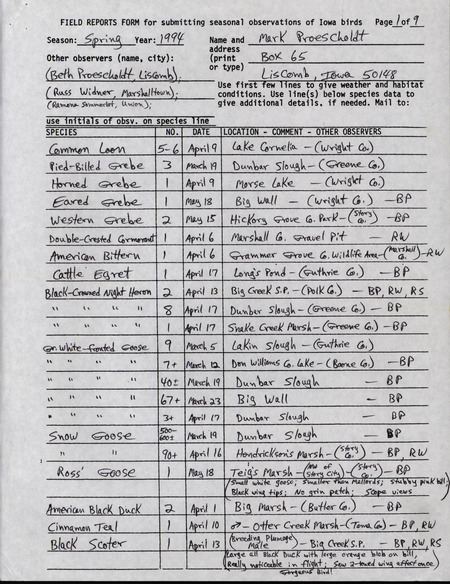 FIELD REPORTS FORM for submitting seasonal observations of Iowa birds Page 1 of 9
Season: Spring Year: 1994 Name and Mark Proescholdt
address
Other observers (name, city): (print Box 65
or type)
(Beth Proescholdt, Liscomb); Liscomb, Iowa 50148
(Russ Widner, Marshalltown); Use first few lines to give weather and habitat
conditions. Use line(s) below species data to
(Ramona Sommerlot, Union); give additional details, if needed. Mail to:
use initials of obsv. on species line
SPECIES NO. DATE LOCATION - COMMENT - OTHER OBSERVERS
Common Loon 5-6 April 9 Lake Cornelia - (Wright Co.)
Pied-Billed Grebe 3 March 19 Dunbar Slough - (Greene Co.)
Horned Grebe 1 April 9 Morse Lake - (Wright Co.)
Eared Grebe 1 May 18 Big Wall - (Wright Co.) - BP
Western Grebe 2 May 15 Hickory Grove Co. Park - (Story Co.) - BP
Double-Crested Cormorant 1 April 6 Marshall Co. Gravel Pit - RW
American Bittern 1 April 6 Grammer Grove Co. Wildlife Area - (Marshall Co.) - RW
Cattle Egret 1 April 17 Long's Pond - (Guthrie Co.) - BP
Black-Crowned Night Heron 2 April 13 Big Creek S.P. - (Polk Co.) - BP, RW, RS
" " " " 8 April 17 Dunbar Slough - (Greene Co.) - BP
" " " " 1 April 17 Snake Creek Marsh - (Greene Co.) - BP
Gr. White-Fronted Goose 9 March 5 Lakin Slough - (Guthrie Co.)
" " " " 7+ March 12 Don Williams Co. Lake - (Boone Co.) - BP
" " " " 40± March 19 Dunbar Slough - BP
" " " " 67+ March 23 Big Wall - BP
" " " " 3+ April 17 Dunbar Slough - BP
Snow Goose 500-600± March 19 Dunbar Slough - BP
" " 90+ April 16 Hendrickson's Marsh - (Story Co.) - BP, RW
Ross' Goose 1 May 18 Teig's Marsh - (NW of Story City) - (Story Co.) - BP
(Small white goose; smaller than Mallards; stubby pink bill;
Black wing tips; No grin patch; Scope views)
American Black Duck 2 April 1 Big Marsh - (Butler Co.) - BP
Cinnamon Teal 1 April 10 ♂ - Otter Creek Marsh - (Tama Co.) - BP, RW
Black Scoter 1 April 13 (Breeding Plumage Male) - Big Creek S.P. - BP, RW, RS
(Large all Black Duck with large orange blob on bill,
(Really noticeable in flight; Saw 2-toned wing effect once)
Gorgeous Bird!